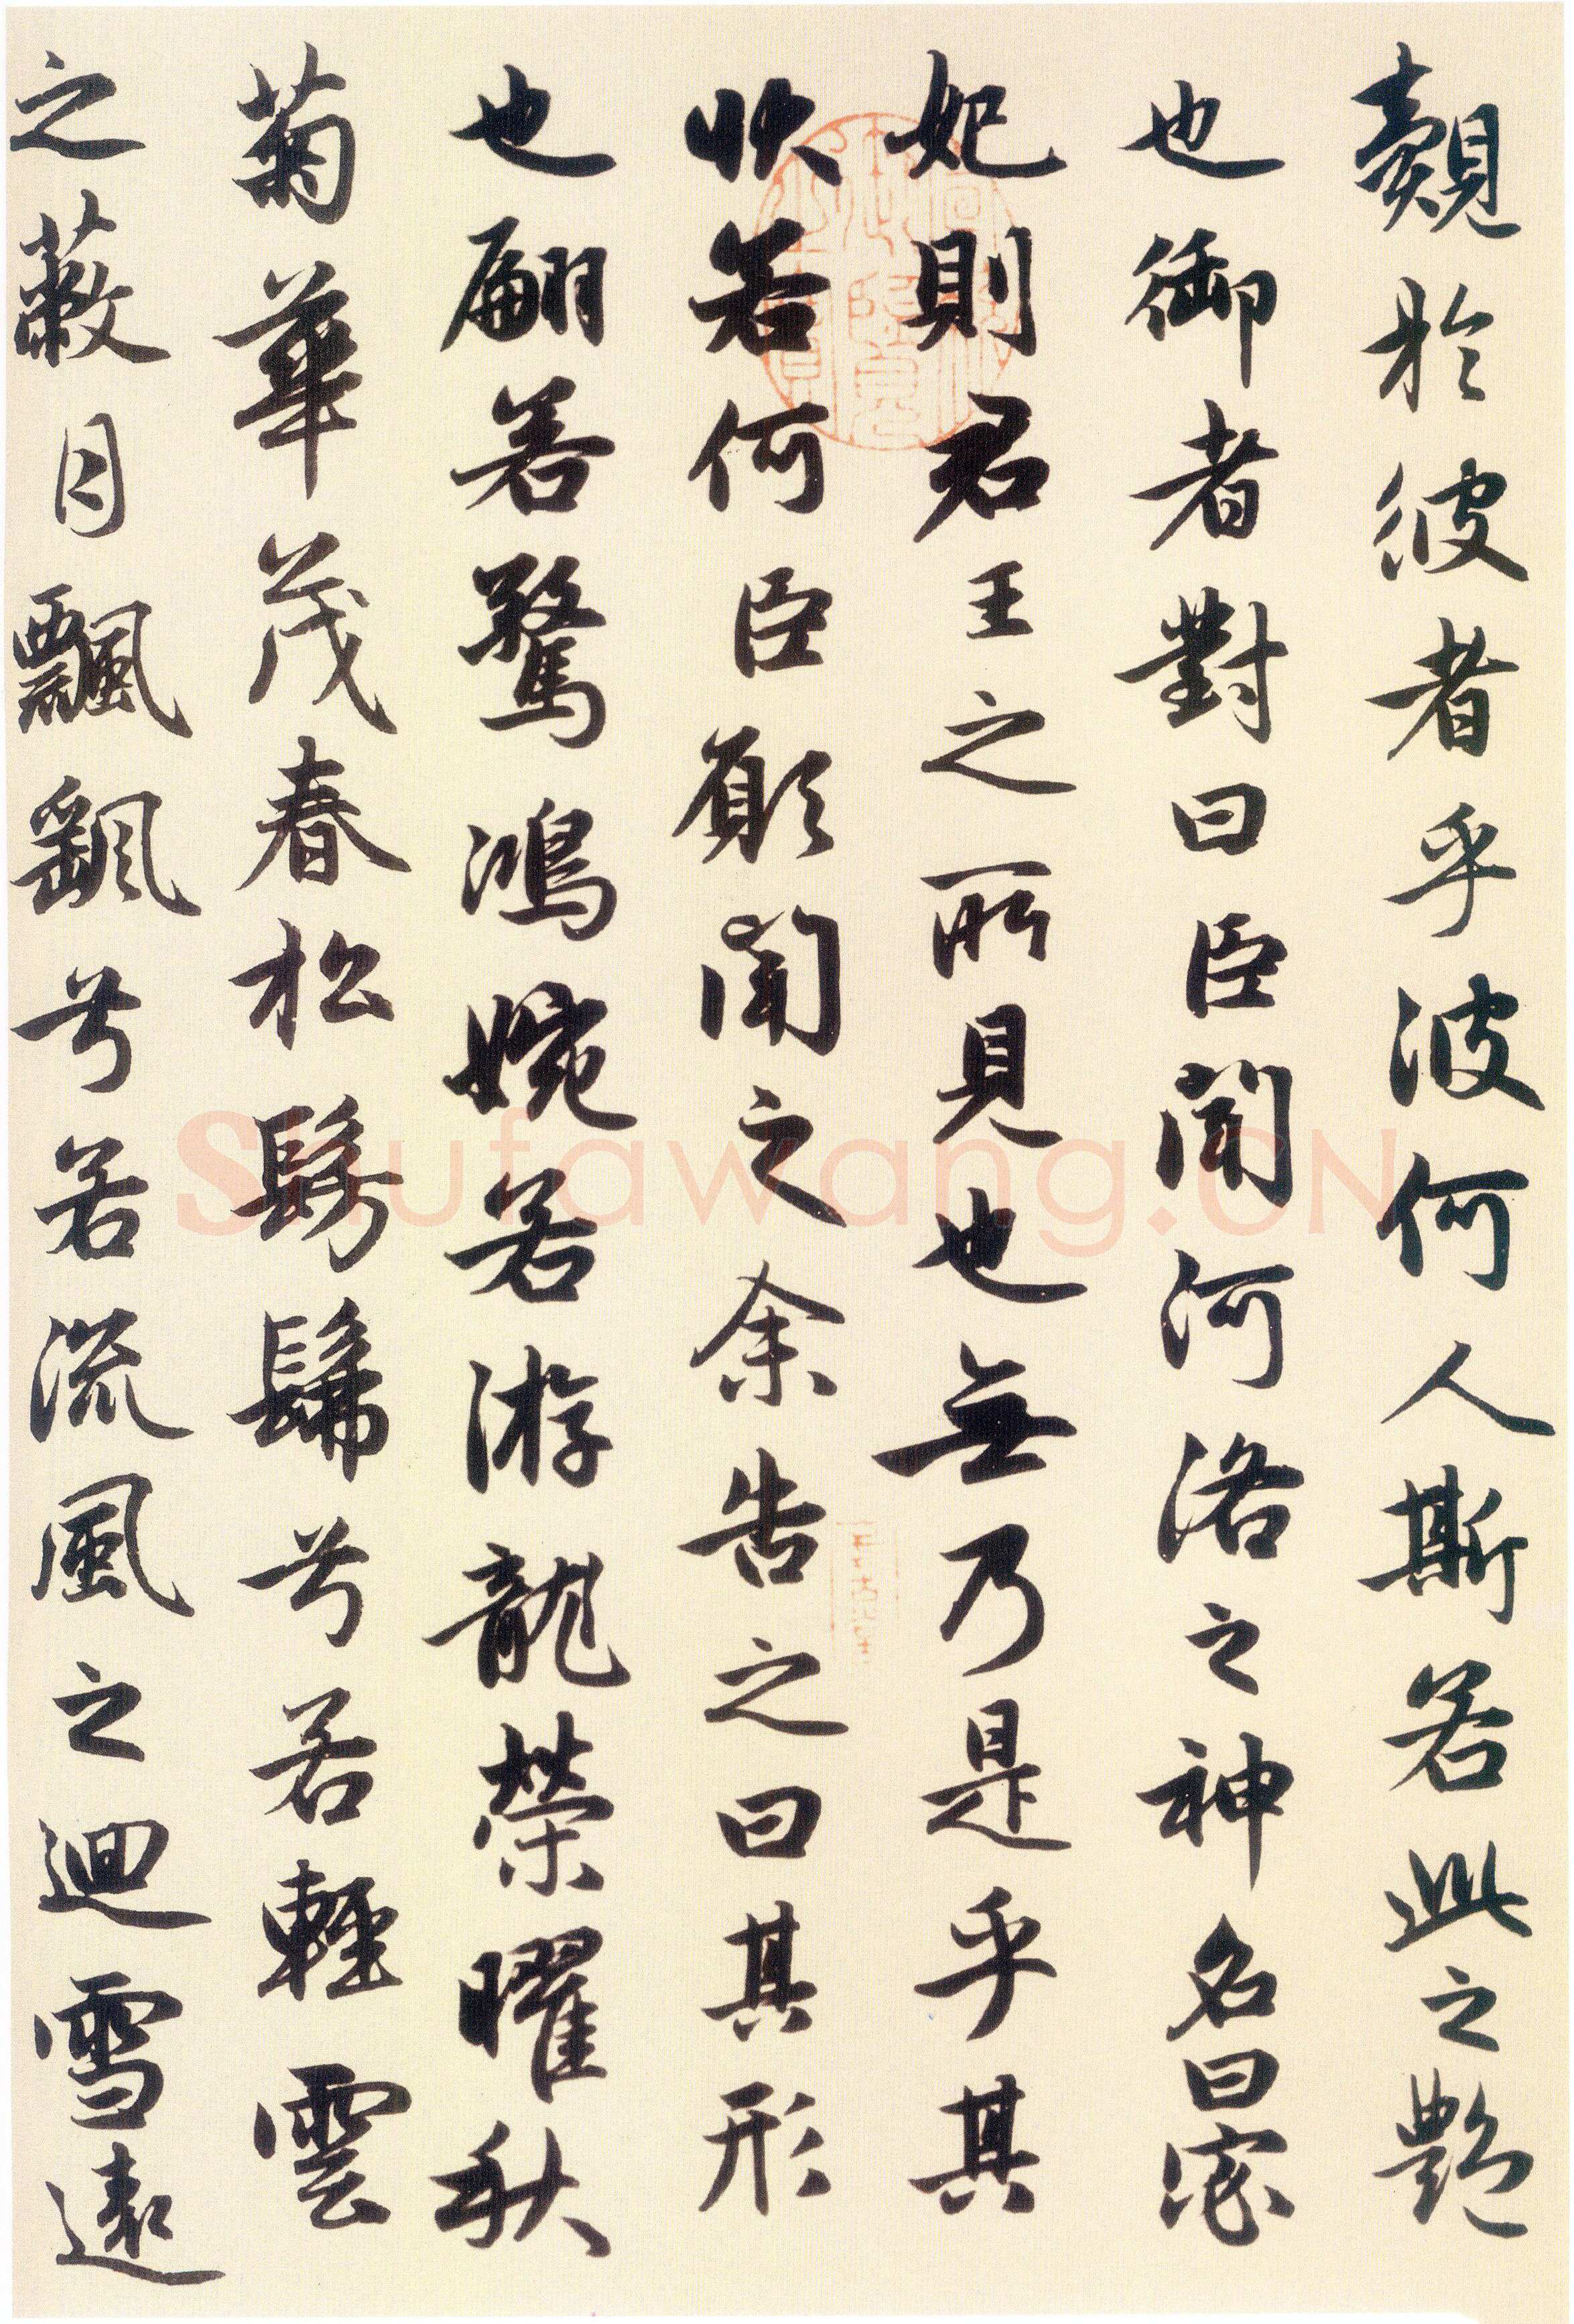 覿於彼者乎波何人斯若此之艷
也御者對曰臣聞河洛之神名曰宓
妃則君王之所見也無乃是乎其
狀若何臣願聞之余告之曰其形
也翩若驚鴻婉若游龍榮曜秋
菊華茂春松髣髴兮若輕雲
之蔽月飄颻兮若流風之迴雪遠
Shufawang.CN